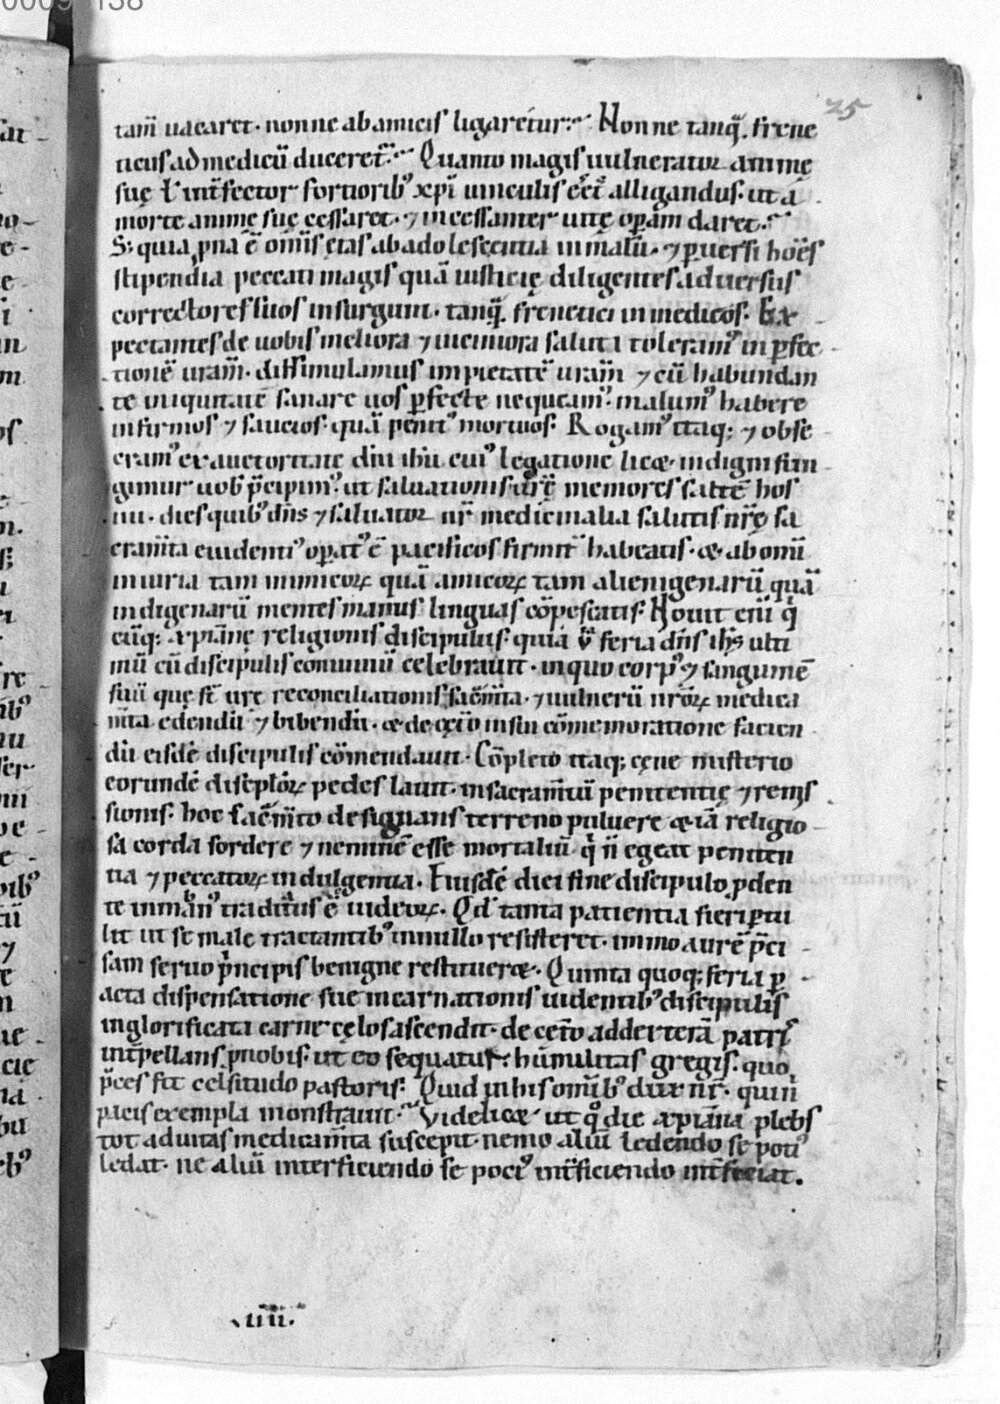 25
tam̄ uacaret. nonne ab amicis ligaretur. Nonne tanq̄ frene
ticus ad medicū duceret̄. Quanto magis uulnerator animę
suę ł int̄fector fortiorib' xpi uinculis eēt alligandus. ut a
morte animę suę cessaret. ⁊ incessanter uitę op̄am daret.
S; quia p̱na ē om̄is ętas ab adolescentia in malū. ⁊ p̱uersi hoēs
stipendia peccati magis quā iusticię diligentes aduersus
correctores suos insurgunt. tanq̄ frenetici in medicos. Ex
pectantes de uobis meliora ⁊ uiciniora saluti toleram' inp̱fec
tionē uram̄. dissimulamus impietatē uram̄ ⁊ cū habundan
te iniquitatē sanare uos p̱fecte nequeam'. malum' habere
infirmos ⁊ saucios. quā penit' mortuos. Rogam' itaq; ⁊ obse
cram' ex auctoritate dīni ihū cui' legatione licæ. indigni fun
gimur uob̄ p̄cipim'. ut saluationis ūrę memores saltē hos
iiii. dies quib' dn̄s ⁊ saluator nr̄ medicinalia salutis nrę̄ sa
cram̄ta euidenti' op̱at' ē pacificos firmit̄ habeatis. & ab omi
iniuria tam inimicoꝝ quā amicoꝝ tam alienigenarū quā
indigenarū mentes manus linguas cōpescatis. Nouit enī q̄
cūq; xp̄ianę religionis discipulus. quia v̄ feria dn̄s ih̄s ulti
mū cū discipulis conuiuiū celebrauit. in quo corp' ⁊ sanguinē
suū que st̄ ur̄e reconciliationis sacm̄ta. ⁊ uulnerū nr̄oꝝ medica
m̄ta edendū ⁊ bibendū. & de cet̄o in sui cōmemoratione facien
dū eisdē discipulis cōmendauit. Cōpleto itaq; cęne misterio
eorundē discip̱loꝝ pedes lauit. in sacram̄tū penitentię ⁊ remis
sionis. hoc sacm̄to designans terreno puluere & iā religio
sa corda sordere ⁊ neminē esse mortaliū q̄ n̄ egeat peniten
tia ⁊ peccatoꝝ indulgentia. Eiusdē diei fine discipulo p̱den
te in man' traditus ē iudeoꝝ. Qd̄ tanta patientia fieri p̱tu
lit ut se male tractantib' in nullo resisteret. immo aurē p̄ci
sam seruo p̄ncipis benigne restitueræ. Quinta quoq; feria p̱
acta dispensatione sue incarnationis uidentib' discipulis
in glorificata carne cęlos ascendit. de cet̄o ad dexterā patris
int̄pellans p̱ nobis. ut eo sequatur humilitas gregis. quo
p̄cessit celsitudo pastoris. Quid in his omīb' dux nr̄. quin
pacis exempla monstrauit. Videlicæ ut q̊ die xp̄iana plebs
tot ad uitas medicam̄ta suscepit. nemo aliū ledendo se poti'
ledat. ne aliū interficiendo se poci' int̄ficiendo int̄ficiat.
.iiii.